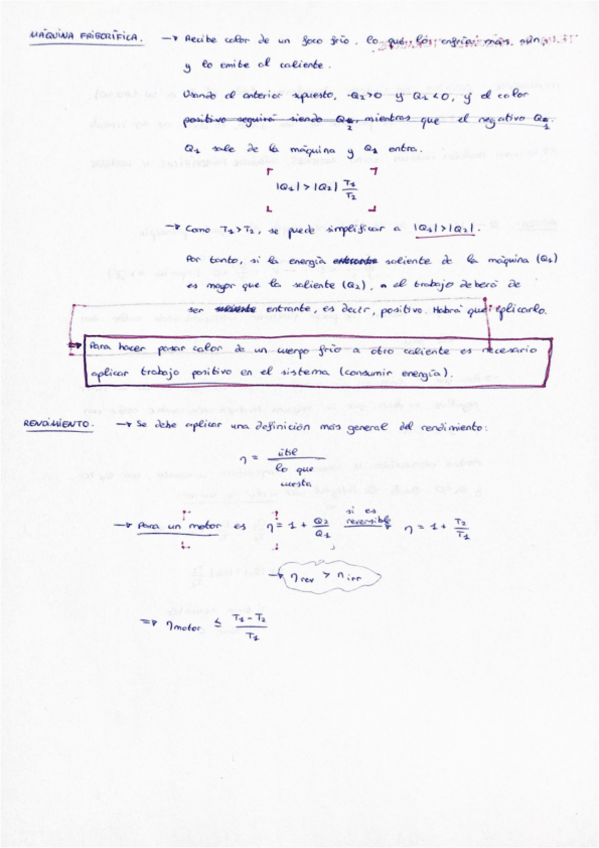 MÁQUINA FRIGORÍFICA. → Recibe calor de un foco frío, lo que los enfría más aún,
y lo emite al caliente.
Usando el anterior supuesto, Q₂>0 y Q₁<0, y el calor
positivo seguirá siendo Q₂, mientras que el negativo Q₁.
Q₁ sale de la máquina y Q₂ entra.
|Q₁| > |Q₂| T₁/T₂
→ Como T₁>T₂, se puede simplificar a |Q₁|>|Q₂|.
Por tanto, si la energía entrante saliente de la máquina (Q₁)
es mayor que la saliente (Q₂), el trabajo deberá de
ser saliente entrante, es decir, positivo. Habrá que aplicarlo.
⇒ Para hacer pasar calor de un cuerpo frío a otro caliente es necesario
aplicar trabajo positivo en el sistema (consumir energía).
RENDIMIENTO. → Se debe aplicar una definición más general del rendimiento:
η = útil / lo que cuesta
→ Para un motor es η = 1 + Q₂/Q₁ si es reversible → η = 1 + T₂/T₁
→ ηrev > ηirr
⇒ ηmotor ≤ T₁ - T₂ / T₁